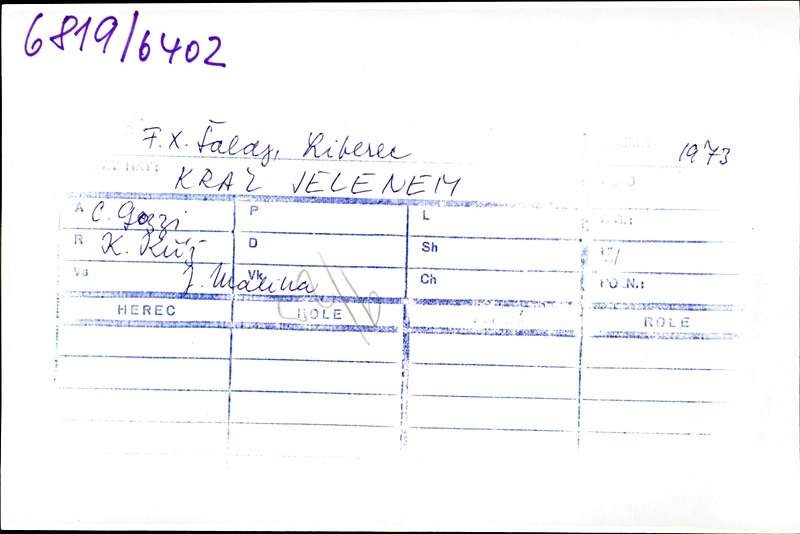 6819/6402
F.X. Šaldy, Liberec 1973
HRY:
KRÁL JELENEM
A C. Gozzi P L
R K. Kříž D Sh
Vs J. Malina Vk Ch PO.N.:
HEREC ROLE ROLE